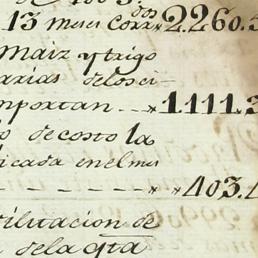 de 1805.
13 meses Corr.dos 2260.5
Maiz y trigo
arias de los ci
mportan 1.111.3
o de costo la
icada en el mes
403.4
ilitacion de
a de la qta